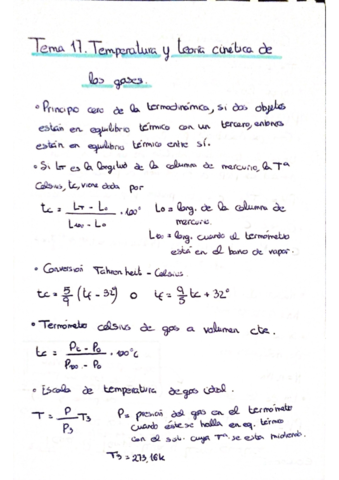 Tema 17. Temperatura y teoría cinética de
los gases.
• Principio cero de la termodinámica, si dos objetos
están en equilibrio térmico con un tercero, entonces
están en equilibrio térmico entre sí.
• Si LT es la longitud de la columna de mercurio, la Tª
Celsius, tc, viene dada por
tc = (LT - L0) / (L100 - L0) · 100° L0 = long. de la columna de
mercurio.
L100 = long. cuando el termómetro
está en el baño de vapor.
• Conversión Fahrenheit - Celsius
tc = 5/9 (tf - 32°) o tf = 9/5 tc + 32°
• Termómetro celsius de gas a volumen cte.
tc = (Pc - P0) / (P100 - P0) · 100°C
• Escala de temperatura de gas ideal.
T = P/P3 T3 P = presión del gas en el termómetro
cuando éste se halla en eq. térmico
con el sist. cuya Tª se está midiendo.
T3 = 273,16k